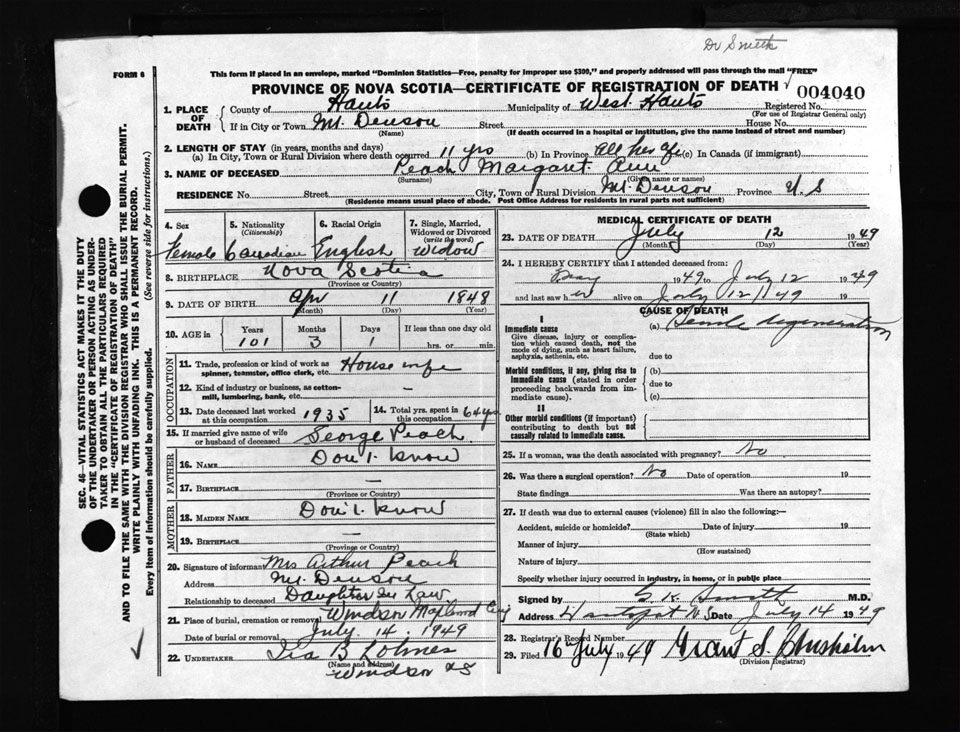 Dr Smith
FORM 6
This form if placed in an envelope, marked "Dominion Statistics—Free, penalty for improper use $300," and properly addressed will pass through the mail "FREE"
PROVINCE OF NOVA SCOTIA—CERTIFICATE OF REGISTRATION OF DEATH
004040
1. PLACE OF DEATH
County of Hants Municipality of West Hants Registered No.
(For use of Registrar General only)
If in City or Town Mt. Denson Street House No.
(Name) (If death occurred in a hospital or institution, give the name instead of street and number)
2. LENGTH OF STAY (in years, months and days)
(a) In City, Town or Rural Division where death occurred 11 yrs (b) In Province All her life (c) In Canada (if immigrant)
3. NAME OF DECEASED Peach Margaret Ann
(Surname) (Given name or names)
RESIDENCE No. Street City, Town or Rural Division Mt. Denson Province N S
(Residence means usual place of abode. Post Office Address for residents in rural parts not sufficient)
4. Sex Female
5. Nationality (Citizenship) Canadian
6. Racial Origin English
7. Single, Married, Widowed or Divorced (write the word) Widow
8. BIRTHPLACE Nova Scotia
(Province or Country)
9. DATE OF BIRTH Apr 11 1848
(Month) (Day) (Year)
10. AGE in Years Months Days If less than one day old
101 3 1 hrs. or min.
OCCUPATION
11. Trade, profession or kind of work as spinner, teamster, office clerk, etc. House wife
12. Kind of industry or business, as cotton-mill, lumbering, bank, etc. —
13. Date deceased last worked at this occupation 1935
14. Total yrs. spent in this occupation 64 yrs
15. If married give name of wife or husband of deceased George Peach
FATHER
16. NAME Don't know
17. BIRTHPLACE —
(Province or Country)
MOTHER
18. MAIDEN NAME Don't know
19. BIRTHPLACE —
(Province or Country)
20. Signature of informant Mrs Arthur Peach
Address Mt. Denson
Relationship to deceased Daughter in Law
21. Place of burial, cremation or removal Windsor Maplewood Cem
Date of burial or removal July 14 1949
22. UNDERTAKER Ira B Lohnes
(Name and address)
Windsor NS
MEDICAL CERTIFICATE OF DEATH
23. DATE OF DEATH July 12 1949
(Month) (Day) (Year)
24. I HEREBY CERTIFY that I attended deceased from:
1949 to July 12 1949
and last saw her alive on July 12/49 19
CAUSE OF DEATH
I
Immediate cause (a) Senile degeneration
Give disease, injury or complication which caused death, not the mode of dying, such as heart failure, asphyxia, asthenia, etc.
due to
Morbid conditions, if any, giving rise to immediate cause (stated in order proceeding backwards from immediate cause).
(b)
due to
(c)
II
Other morbid conditions (if important) contributing to death but not causally related to immediate cause.
25. If a woman, was the death associated with pregnancy? No
26. Was there a surgical operation? No Date of operation 19
State findings Was there an autopsy?
27. If death was due to external causes (violence) fill in also the following:—
Accident, suicide or homicide? Date of injury 19
(State which)
Manner of injury
(How sustained)
Nature of injury
Specify whether injury occurred in industry, in home, or in public place
Signed by Smith M.D.
Address Hantsport N.S. Date July 14 1949
28. Registrar's Record Number
29. Filed 16th July 1949 Grant S. Chisholm
(Division Registrar)
SEC. 46—VITAL STATISTICS ACT MAKES IT THE DUTY
OF THE UNDERTAKER OR PERSON ACTING AS UNDER-
TAKER TO OBTAIN ALL THE PARTICULARS REQUIRED
IN THE "CERTIFICATE OF REGISTRATION OF DEATH"
AND TO FILE THE SAME WITH THE DIVISION REGISTRAR WHO SHALL ISSUE THE BURIAL PERMIT.
WRITE PLAINLY WITH UNFADING INK. THIS IS A PERMANENT RECORD.
Every item of information should be carefully supplied. (See reverse side for instructions.)